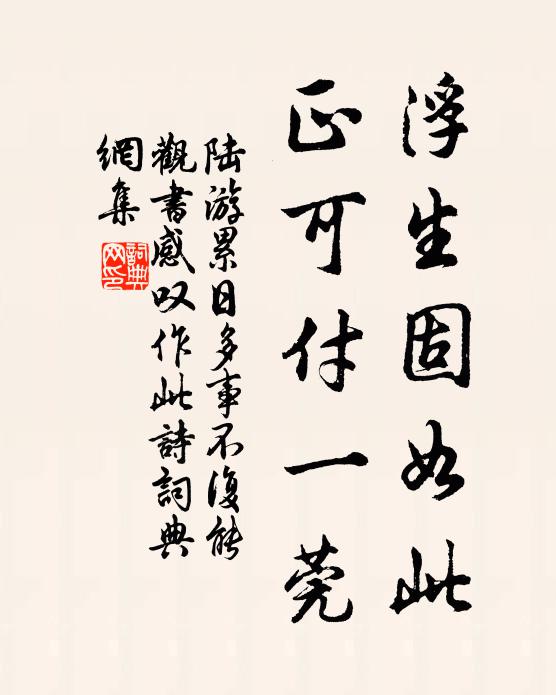 浮生固如此
正可付一莞
陆游累日多事不復能
觀書感叹作此詩詞典
網集
詞典網印